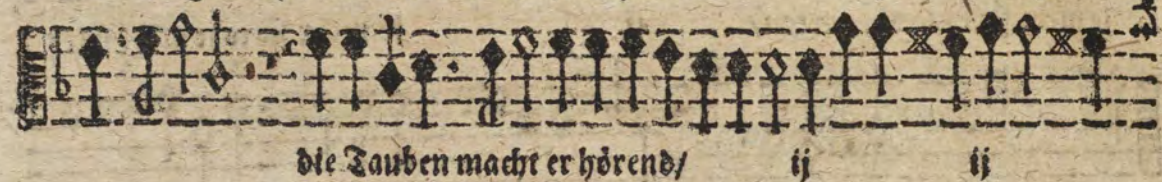 die Tauben macht er hörend/ ij ij